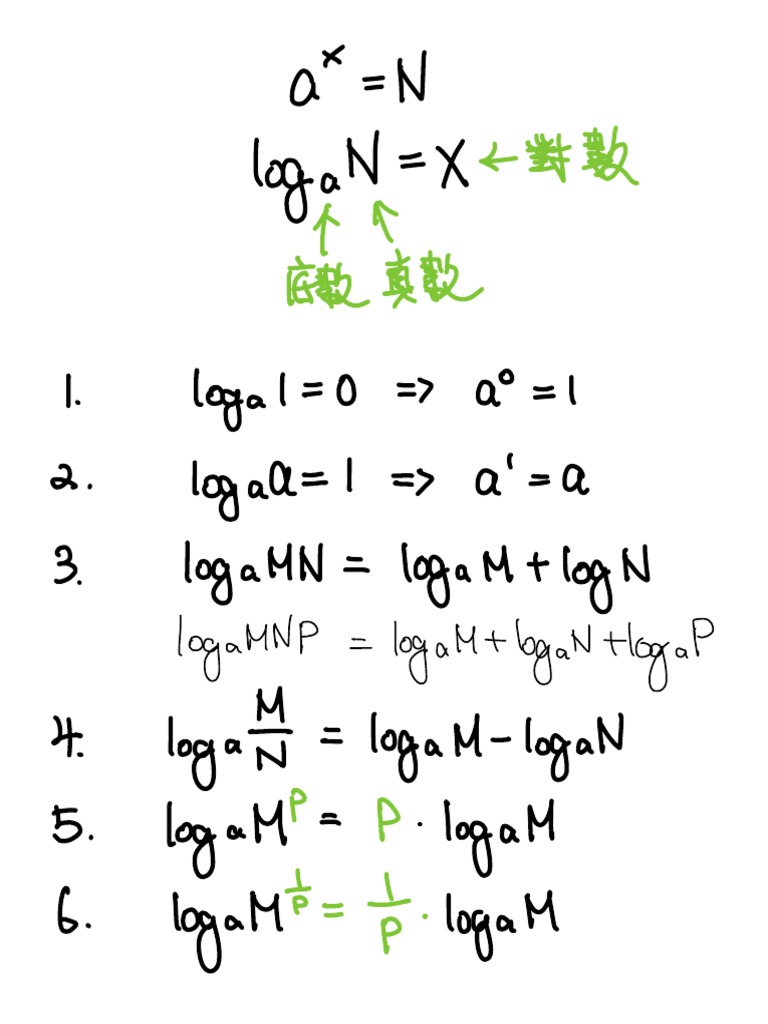 aˣ = N
logₐN = X ← 對數
↑ ↑
底數 真數
1. logₐ1 = 0 => a⁰ = 1
2. logₐa = 1 => a¹ = a
3. logₐMN = logₐM + log N
logₐMNP = logₐM + logₐN + logₐP
4. logₐ M/N = logₐM - logₐN
5. logₐM^P = P · logₐM
6. logₐM^(1/P) = 1/P · logₐM